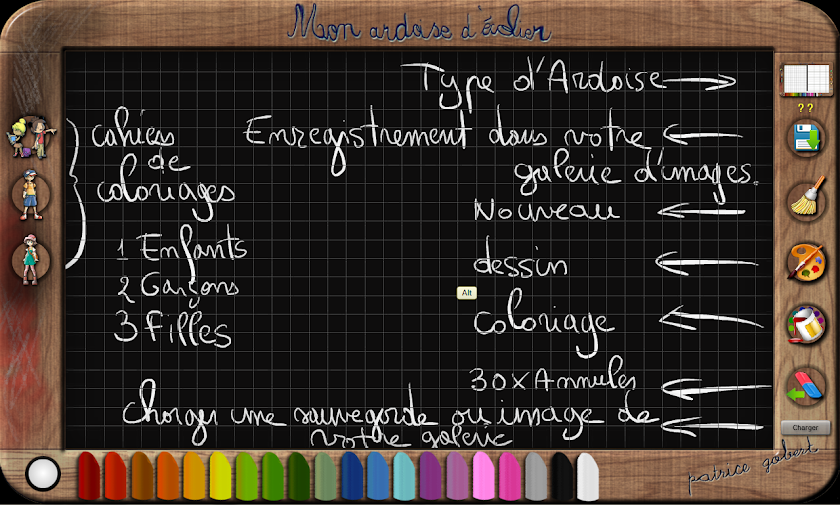 Mon ardoise d'écolier
Type d'Ardoise
??
cahiers
de
coloriages
Enregistrement dans votre
galerie d'images.
Nouveau
1 Enfants
dessin
2 Garçons
Alt
3 Filles
coloriage
30x Annuler
Charger une sauvegarde ou image de
votre galerie
Charger
patrice gobert